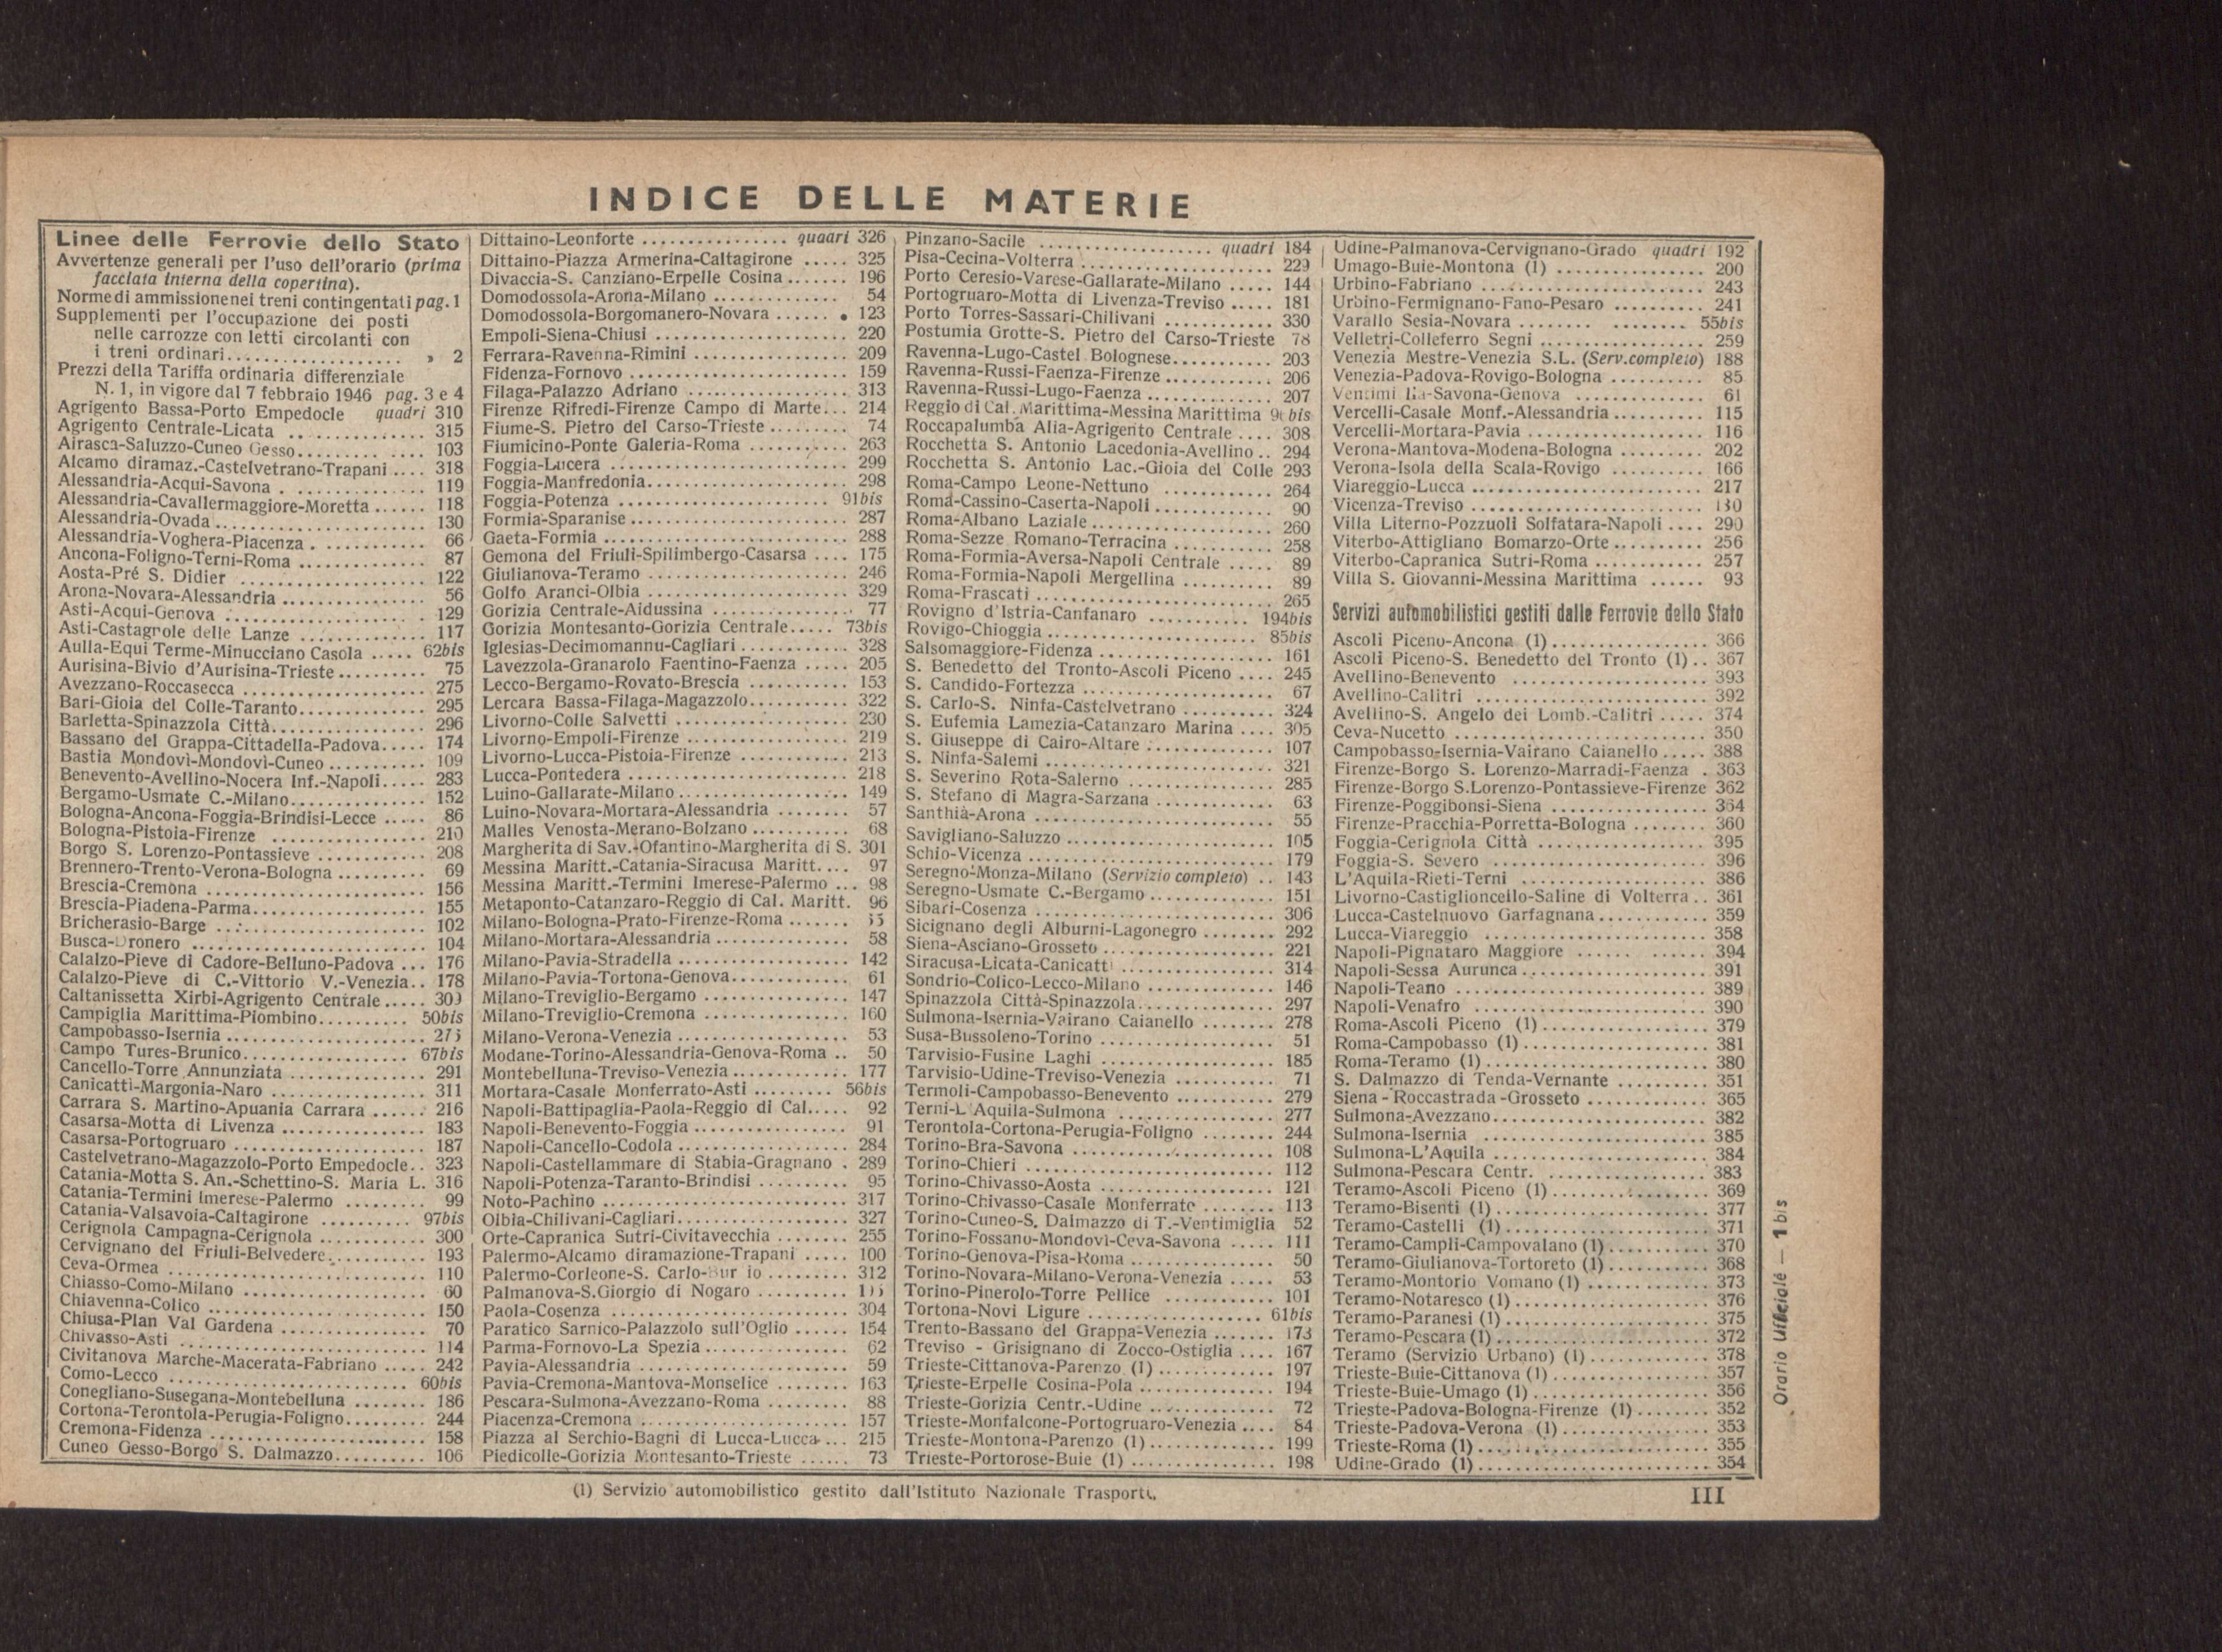 INDICE DELLE MATERIE
Linee delle Ferrovie dello Stato
Avvertenze generali per l'uso dell'orario (prima
facciata interna della copertina).
Norme di ammissione nei treni contingentati pag. 1
Supplementi per l'occupazione dei posti
nelle carrozze con letti circolanti con
i treni ordinari.................. » 2
Prezzi della Tariffa ordinaria differenziale
N. 1, in vigore dal 7 febbraio 1946 pag. 3 e 4
Agrigento Bassa-Porto Empedocle quadri 310
Agrigento Centrale-Licata .............. 315
Airasca-Saluzzo-Cuneo Gesso............. 103
Alcamo diramaz.-Castelvetrano-Trapani .... 318
Alessandria-Acqui-Savona .............. 119
Alessandria-Cavallermaggiore-Moretta ...... 118
Alessandria-Ovada ...................... 130
Alessandria-Voghera-Piacenza ............ 66
Ancona-Foligno-Terni-Roma ............. 87
Aosta-Pré S. Didier .................... 122
Arona-Novara-Alessandria ............... 56
Asti-Acqui-Genova ..................... 129
Asti-Castagnole delle Lanze ............. 117
Aulla-Equi Terme-Minucciano Casola ..... 62bis
Aurisina-Bivio d'Aurisina-Trieste.......... 75
Avezzano-Roccasecca .................... 275
Bari-Gioia del Colle-Taranto.............. 295
Barletta-Spinazzola Città................. 296
Bassano del Grappa-Cittadella-Padova..... 174
Bastia Mondovì-Mondovì-Cuneo .......... 109
Benevento-Avellino-Nocera Inf.-Napoli..... 283
Bergamo-Usmate C.-Milano............... 152
Bologna-Ancona-Foggia-Brindisi-Lecce ..... 86
Bologna-Pistoia-Firenze ................ 210
Borgo S. Lorenzo-Pontassieve ............ 208
Brennero-Trento-Verona-Bologna .......... 69
Brescia-Cremona ........................ 156
Brescia-Piadena-Parma................... 155
Bricherasio-Barge ....................... 102
Busca-Dronero ......................... 104
Calalzo-Pieve di Cadore-Belluno-Padova ... 176
Calalzo-Pieve di C.-Vittorio V.-Venezia.. 178
Caltanissetta Xirbi-Agrigento Centrale..... 309
Campiglia Marittima-Piombino.......... 50bis
Campobasso-Isernia ......................
Campo Tures-Brunico.................. 67bis
Cancello-Torre Annunziata ............... 291
Canicattì-Margonia-Naro ................. 311
Carrara S. Martino-Apuania Carrara ...... 216
Casarsa-Motta di Livenza ................ 183
Casarsa-Portogruaro ..................... 187
Castelvetrano-Magazzolo-Porto Empedocle.. 323
Catania-Motta S. An.-Schettino-S. Maria L. 316
Catania-Termini Imerese-Palermo ........ 99
Catania-Valsavoia-Caltagirone .......... 97bis
Cerignola Campagna-Cerignola ............ 300
Cervignano del Friuli-Belvedere........... 193
Ceva-Ormea ............................ 110
Chiasso-Como-Milano .................... 60
Chiavenna-Colico ........................ 150
Chiusa-Plan Val Gardena ................ 70
Chivasso-Asti ........................... 114
Civitanova Marche-Macerata-Fabriano ..... 242
Como-Lecco .......................... 60bis
Conegliano-Susegana-Montebelluna ........ 186
Cortona-Terontola-Perugia-Foligno......... 244
Cremona-Fidenza ........................ 158
Cuneo Gesso-Borgo S. Dalmazzo.......... 106
Dittaino-Leonforte ................ quadri 326
Dittaino-Piazza Armerina-Caltagirone ..... 325
Divaccia-S. Canziano-Erpelle Cosina....... 196
Domodossola-Arona-Milano .............. 54
Domodossola-Borgomanero-Novara ...... 123
Empoli-Siena-Chiusi ..................... 220
Ferrara-Ravenna-Rimini ................. 209
Fidenza-Fornovo ........................ 159
Filaga-Palazzo Adriano .................. 313
Firenze Rifredi-Firenze Campo di Marte... 214
Fiume-S. Pietro del Carso-Trieste ......... 74
Fiumicino-Ponte Galeria-Roma ........... 263
Foggia-Lucera .......................... 299
Foggia-Manfredonia...................... 298
Foggia-Potenza ....................... 91bis
Formia-Sparanise........................ 287
Gaeta-Formia ........................... 288
Gemona del Friuli-Spilimbergo-Casarsa .... 175
Giulianova-Teramo ...................... 246
Golfo Aranci-Olbia ...................... 329
Gorizia Centrale-Aidussina ............... 77
Gorizia Montesanto-Gorizia Centrale..... 73bis
Iglesias-Decimomannu-Cagliari ............ 328
Lavezzola-Granarolo Faentino-Faenza ..... 205
Lecco-Bergamo-Rovato-Brescia ........... 153
Lercara Bassa-Filaga-Magazzolo........... 322
Livorno-Colle Salvetti ................... 230
Livorno-Empoli-Firenze .................. 219
Livorno-Lucca-Pistoia-Firenze ............ 213
Lucca-Pontedera ........................ 218
Luino-Gallarate-Milano................... 149
Luino-Novara-Mortara-Alessandria ........ 57
Malles Venosta-Merano-Bolzano ........... 68
Margherita di Sav.-Ofantino-Margherita di S. 301
Messina Maritt.-Catania-Siracusa Maritt.... 97
Messina Maritt.-Termini Imerese-Palermo ... 98
Metaponto-Catanzaro-Reggio di Cal. Maritt. 96
Milano-Bologna-Prato-Firenze-Roma .......
Milano-Mortara-Alessandria ............... 58
Milano-Pavia-Stradella ................... 142
Milano-Pavia-Tortona-Genova............. 61
Milano-Treviglio-Bergamo ................ 147
Milano-Treviglio-Cremona ................ 160
Milano-Verona-Venezia .................. 53
Modane-Torino-Alessandria-Genova-Roma .. 50
Montebelluna-Treviso-Venezia ............. 177
Mortara-Casale Monferrato-Asti ......... 56bis
Napoli-Battipaglia-Paola-Reggio di Cal..... 92
Napoli-Benevento-Foggia ................. 91
Napoli-Cancello-Codola ................... 284
Napoli-Castellammare di Stabia-Gragnano . 289
Napoli-Potenza-Taranto-Brindisi .......... 95
Noto-Pachino ........................... 317
Olbia-Chilivani-Cagliari................... 327
Orte-Capranica Sutri-Civitavecchia ........ 255
Palermo-Alcamo diramazione-Trapani ..... 100
Palermo-Corleone-S. Carlo- ......... 312
Palmanova-S.Giorgio di Nogaro ..........
Paola-Cosenza .......................... 304
Paratico Sarnico-Palazzolo sull'Oglio ...... 154
Parma-Fornovo-La Spezia................ 62
Pavia-Alessandria ....................... 59
Pavia-Cremona-Mantova-Monselice ........ 163
Pescara-Sulmona-Avezzano-Roma ......... 88
Piacenza-Cremona ....................... 157
Piazza al Serchio-Bagni di Lucca-Lucca... 215
Piedicolle-Gorizia Montesanto-Trieste ...... 73
Pinzano-Sacile .................. quadri 184
Pisa-Cecina-Volterra ..................... 229
Porto Ceresio-Varese-Gallarate-Milano ..... 144
Portogruaro-Motta di Livenza-Treviso ..... 181
Porto Torres-Sassari-Chilivani ............ 330
Postumia Grotte-S. Pietro del Carso-Trieste 78
Ravenna-Lugo-Castel Bolognese........... 203
Ravenna-Russi-Faenza-Firenze ............ 206
Ravenna-Russi-Lugo-Faenza .............. 207
Reggio di Cal. Marittima-Messina Marittima
Roccapalumba Alia-Agrigento Centrale .... 308
Rocchetta S. Antonio Lacedonia-Avellino .. 294
Rocchetta S. Antonio Lac.-Gioia del Colle 293
Roma-Campo Leone-Nettuno ............ 264
Roma-Cassino-Caserta-Napoli ............. 90
Roma-Albano Laziale..................... 260
Roma-Sezze Romano-Terracina ........... 258
Roma-Formia-Aversa-Napoli Centrale ..... 89
Roma-Formia-Napoli Mergellina .......... 89
Roma-Frascati .......................... 265
Rovigno d'Istria-Canfanaro ........... 194bis
Rovigo-Chioggia ...................... 85bis
Salsomaggiore-Fidenza ................... 161
S. Benedetto del Tronto-Ascoli Piceno .... 245
S. Candido-Fortezza ..................... 67
S. Carlo-S. Ninfa-Castelvetrano .......... 324
S. Eufemia Lamezia-Catanzaro Marina .... 305
S. Giuseppe di Cairo-Altare .............. 107
S. Ninfa-Salemi ......................... 321
S. Severino Rota-Salerno ................ 285
S. Stefano di Magra-Sarzana ............. 63
Santhià-Arona .......................... 55
Savigliano-Saluzzo ....................... 105
Schio-Vicenza ........................... 179
Seregno-Monza-Milano (Servizio completo) .. 143
Seregno-Usmate C.-Bergamo .............. 151
Sibari-Cosenza .......................... 306
Sicignano degli Alburni-Lagonegro ........ 292
Siena-Asciano-Grosseto ................... 221
Siracusa-Licata-Canicattì ................. 314
Sondrio-Colico-Lecco-Milano .............. 146
Spinazzola Città-Spinazzola............... 297
Sulmona-Isernia-Vairano Caianello ........ 278
Susa-Bussoleno-Torino ................... 51
Tarvisio-Fusine Laghi ................... 185
Tarvisio-Udine-Treviso-Venezia ........... 71
Termoli-Campobasso-Benevento ........... 279
Terni-L'Aquila-Sulmona ................. 277
Terontola-Cortona-Perugia-Foligno ........ 244
Torino-Bra-Savona ...................... 108
Torino-Chieri ........................... 112
Torino-Chivasso-Aosta ................... 121
Torino-Chivasso-Casale Monferrato ........ 113
Torino-Cuneo-S. Dalmazzo di T.-Ventimiglia 52
Torino-Fossano-Mondovì-Ceva-Savona ..... 111
Torino-Genova-Pisa-Roma ................ 50
Torino-Novara-Milano-Verona-Venezia ..... 53
Torino-Pinerolo-Torre Pellice ............ 101
Tortona-Novi Ligure .................. 61bis
Trento-Bassano del Grappa-Venezia ....... 173
Treviso - Grisignano di Zocco-Ostiglia .... 167
Trieste-Cittanova-Parenzo (1) ............. 197
Trieste-Erpelle Cosina-Pola ............... 194
Trieste-Gorizia Centr.-Udine .............. 72
Trieste-Monfalcone-Portogruaro-Venezia .... 84
Trieste-Montona-Parenzo (1) .............. 199
Trieste-Portorose-Buie (1) ................ 198
Udine-Palmanova-Cervignano-Grado quadri 192
Umago-Buie-Montona (1) ................ 200
Urbino-Fabriano ........................ 243
Urbino-Fermignano-Fano-Pesaro .......... 241
Varallo Sesia-Novara ........ ........ 55bis
Velletri-Colleferro Segni .................. 259
Venezia Mestre-Venezia S.L. (Serv.completo) 188
Venezia-Padova-Rovigo-Bologna .......... 85
Ventimiglia-Savona-Genova ............. 61
Vercelli-Casale Monf.-Alessandria .......... 115
Vercelli-Mortara-Pavia ................... 116
Verona-Mantova-Modena-Bologna ......... 202
Verona-Isola della Scala-Rovigo ........... 166
Viareggio-Lucca ......................... 217
Vicenza-Treviso .........................
Villa Literno-Pozzuoli Solfatara-Napoli .... 290
Viterbo-Attigliano Bomarzo-Orte .......... 256
Viterbo-Capranica Sutri-Roma ............ 257
Villa S. Giovanni-Messina Marittima ...... 93
Servizi automobilistici gestiti dalle Ferrovie dello Stato
Ascoli Piceno-Ancona (1) ................. 366
Ascoli Piceno-S. Benedetto del Tronto (1) .. 367
Avellino-Benevento ..................... 393
Avellino-Calitri ......................... 392
Avellino-S. Angelo dei Lomb.-Calitri ..... 374
Ceva-Nucetto ........................... 350
Campobasso-Isernia-Vairano Caianello ..... 388
Firenze-Borgo S. Lorenzo-Marradi-Faenza . 363
Firenze-Borgo S.Lorenzo-Pontassieve-Firenze 362
Firenze-Poggibonsi-Siena ................ 364
Firenze-Pracchia-Porretta-Bologna ........ 360
Foggia-Cerignola Città .................. 395
Foggia-S. Severo ....................... 396
L'Aquila-Rieti-Terni .................... 386
Livorno-Castiglioncello-Saline di Volterra .. 361
Lucca-Castelnuovo Garfagnana ............ 359
Lucca-Viareggio ........................ 358
Napoli-Pignataro Maggiore ...... ...... 394
Napoli-Sessa Aurunca .................... 391
Napoli-Teano ........................... 389
Napoli-Venafro ......................... 390
Roma-Ascoli Piceno (1) .................. 379
Roma-Campobasso (1) .................... 381
Roma-Teramo (1) ........................ 380
S. Dalmazzo di Tenda-Vernante .......... 351
Siena - Roccastrada - Grosseto ............. 365
Sulmona-Avezzano....................... 382
Sulmona-Isernia ........................ 385
Sulmona-L'Aquila ....................... 384
Sulmona-Pescara Centr. ................. 383
Teramo-Ascoli Piceno (1) ................. 369
Teramo-Bisenti (1) ....................... 377
Teramo-Castelli (1) ...................... 371
Teramo-Campli-Campovalano (1) ........... 370
Teramo-Giulianova-Tortoreto (1) ........... 368
Teramo-Montorio Vomano (1) ............. 373
Teramo-Notaresco (1) .................... 376
Teramo-Paranesi (1) ..................... 375
Teramo-Pescara (1) ...................... 372
Teramo (Servizio Urbano) (1) ............. 378
Trieste-Buie-Cittanova (1) ................ 357
Trieste-Buie-Umago (1) .................. 356
Trieste-Padova-Bologna-Firenze (1) ........ 352
Trieste-Padova-Verona (1) ............... 353
Trieste-Roma (1) ........................ 355
Udine-Grado (1) ......................... 354
(1) Servizio automobilistico gestito dall'Istituto Nazionale Trasporti.
III
Orario Ufficiale — 1 bis